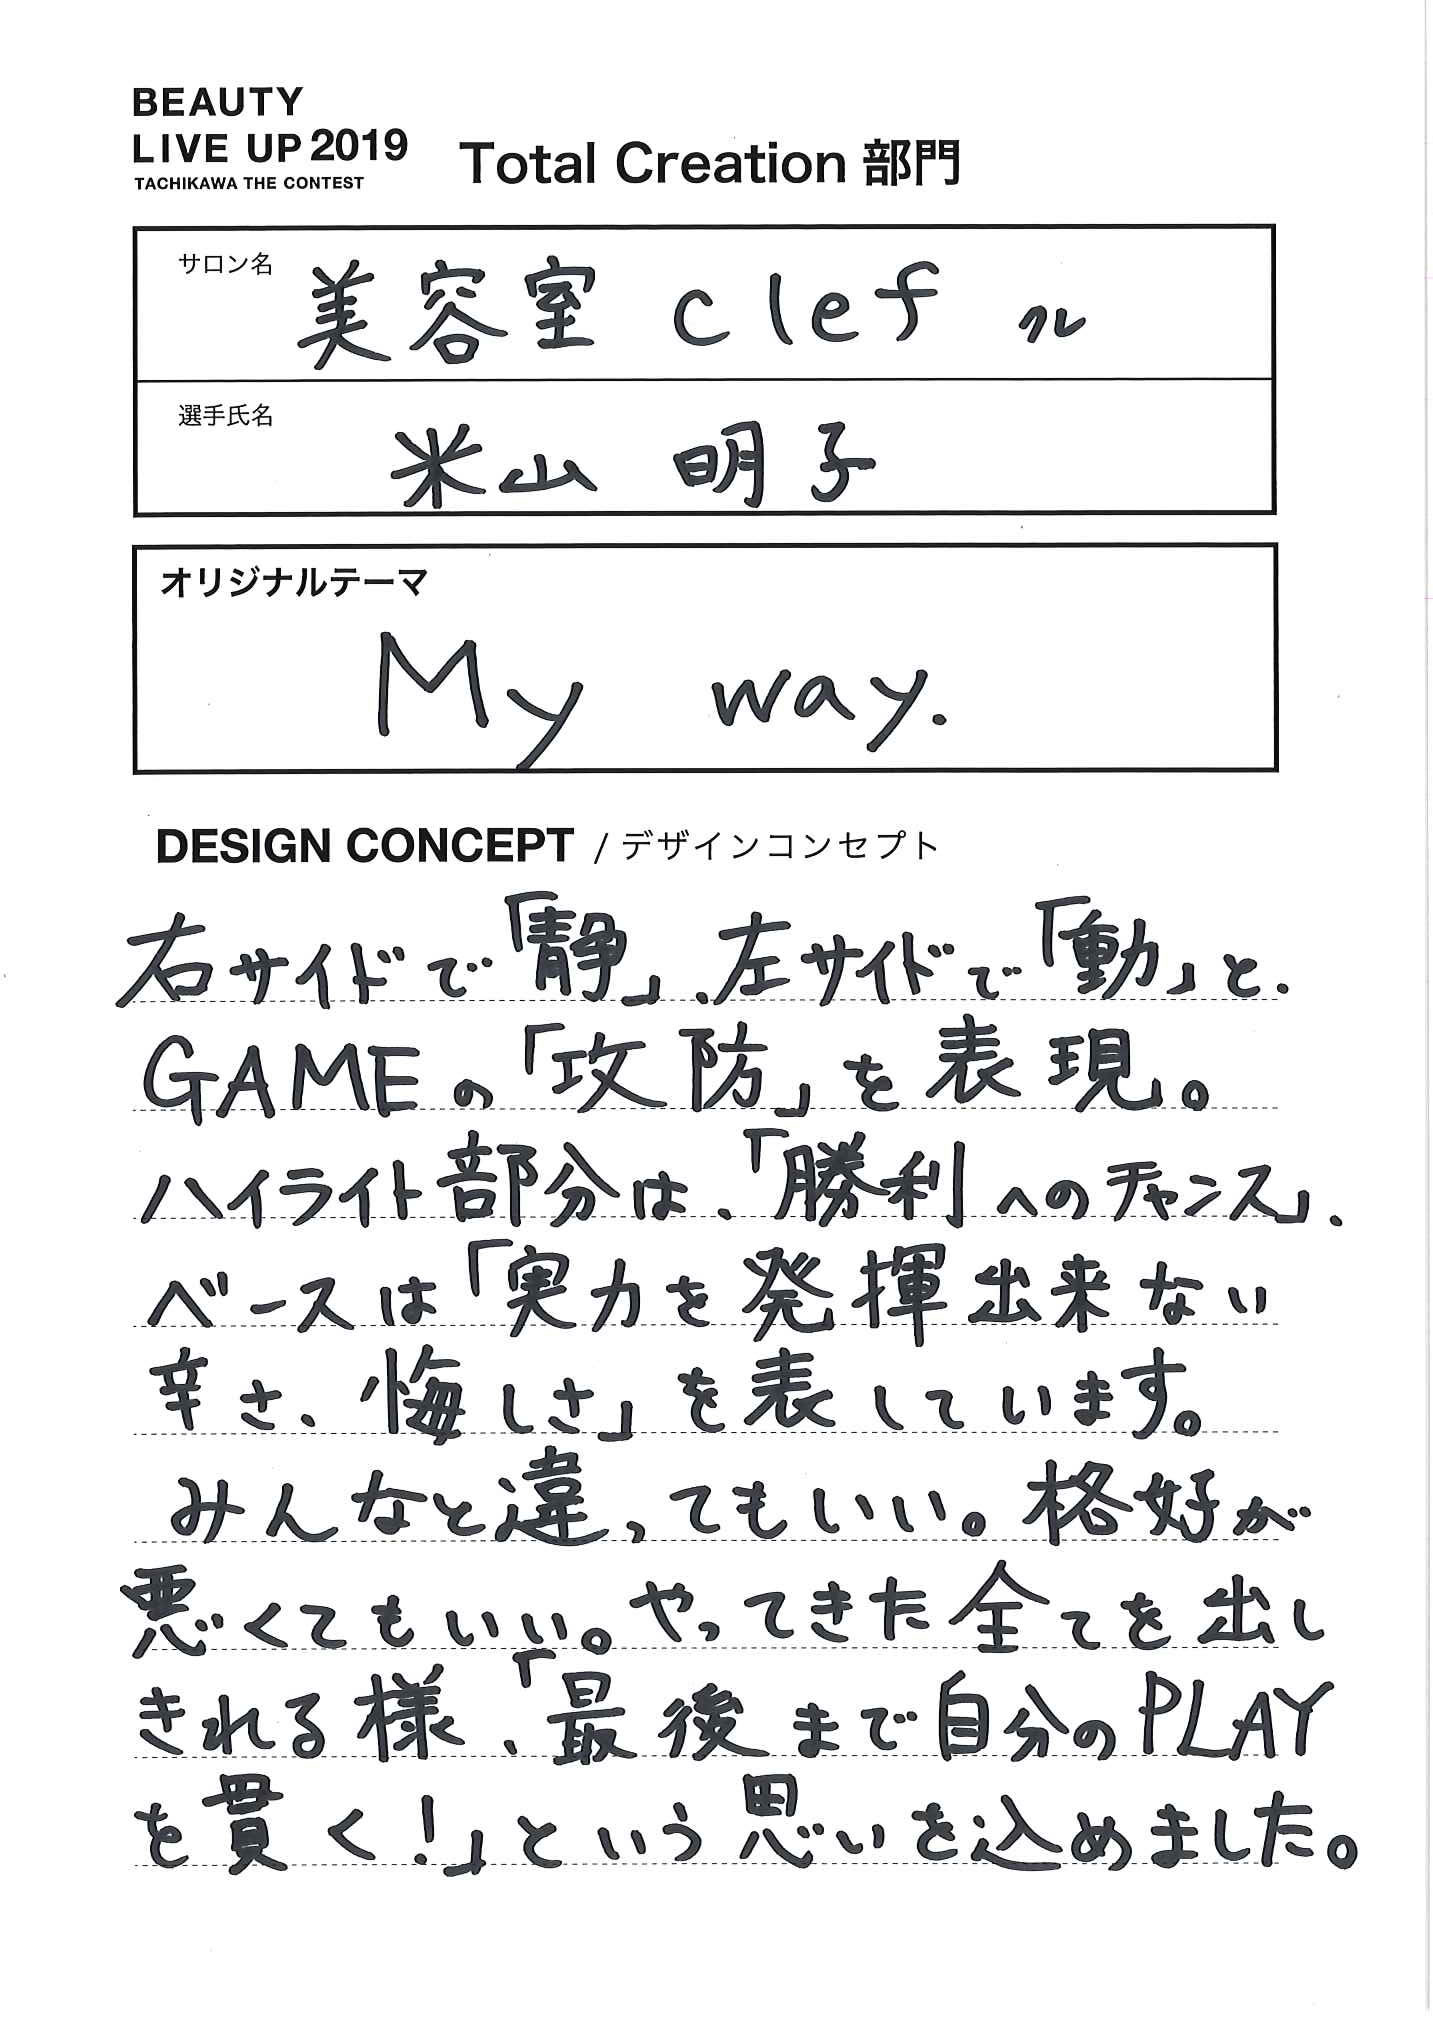 BEAUTY
LIVE UP 2019
TACHIKAWA THE CONTEST
Total Creation 部門
サロン名
美容室 clef ル
選手氏名
米山 明子
オリジナルテーマ
My way.
DESIGN CONCEPT / デザインコンセプト
右サイドで「静」、左サイドで「動」と、
GAMEの「攻防」を表現。
ハイライト部分は、「勝利へのチャンス」、
ベースは「実力を発揮出来ない
辛さ、悔しさ」を表しています。
みんなと違ってもいい。格好が
悪くてもいい。やってきた全てを出し
きれる様、「最後まで自分のPLAY
を貫く!」という思いを込めました。